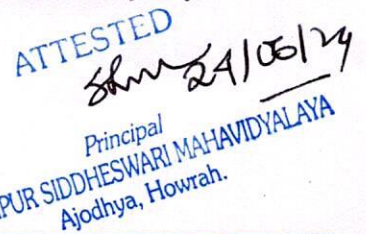 ATTESTED
24/06/24
Principal
PUR SIDDHESWARI MAHAVIDYALAYA
Ajodhya, Howrah.